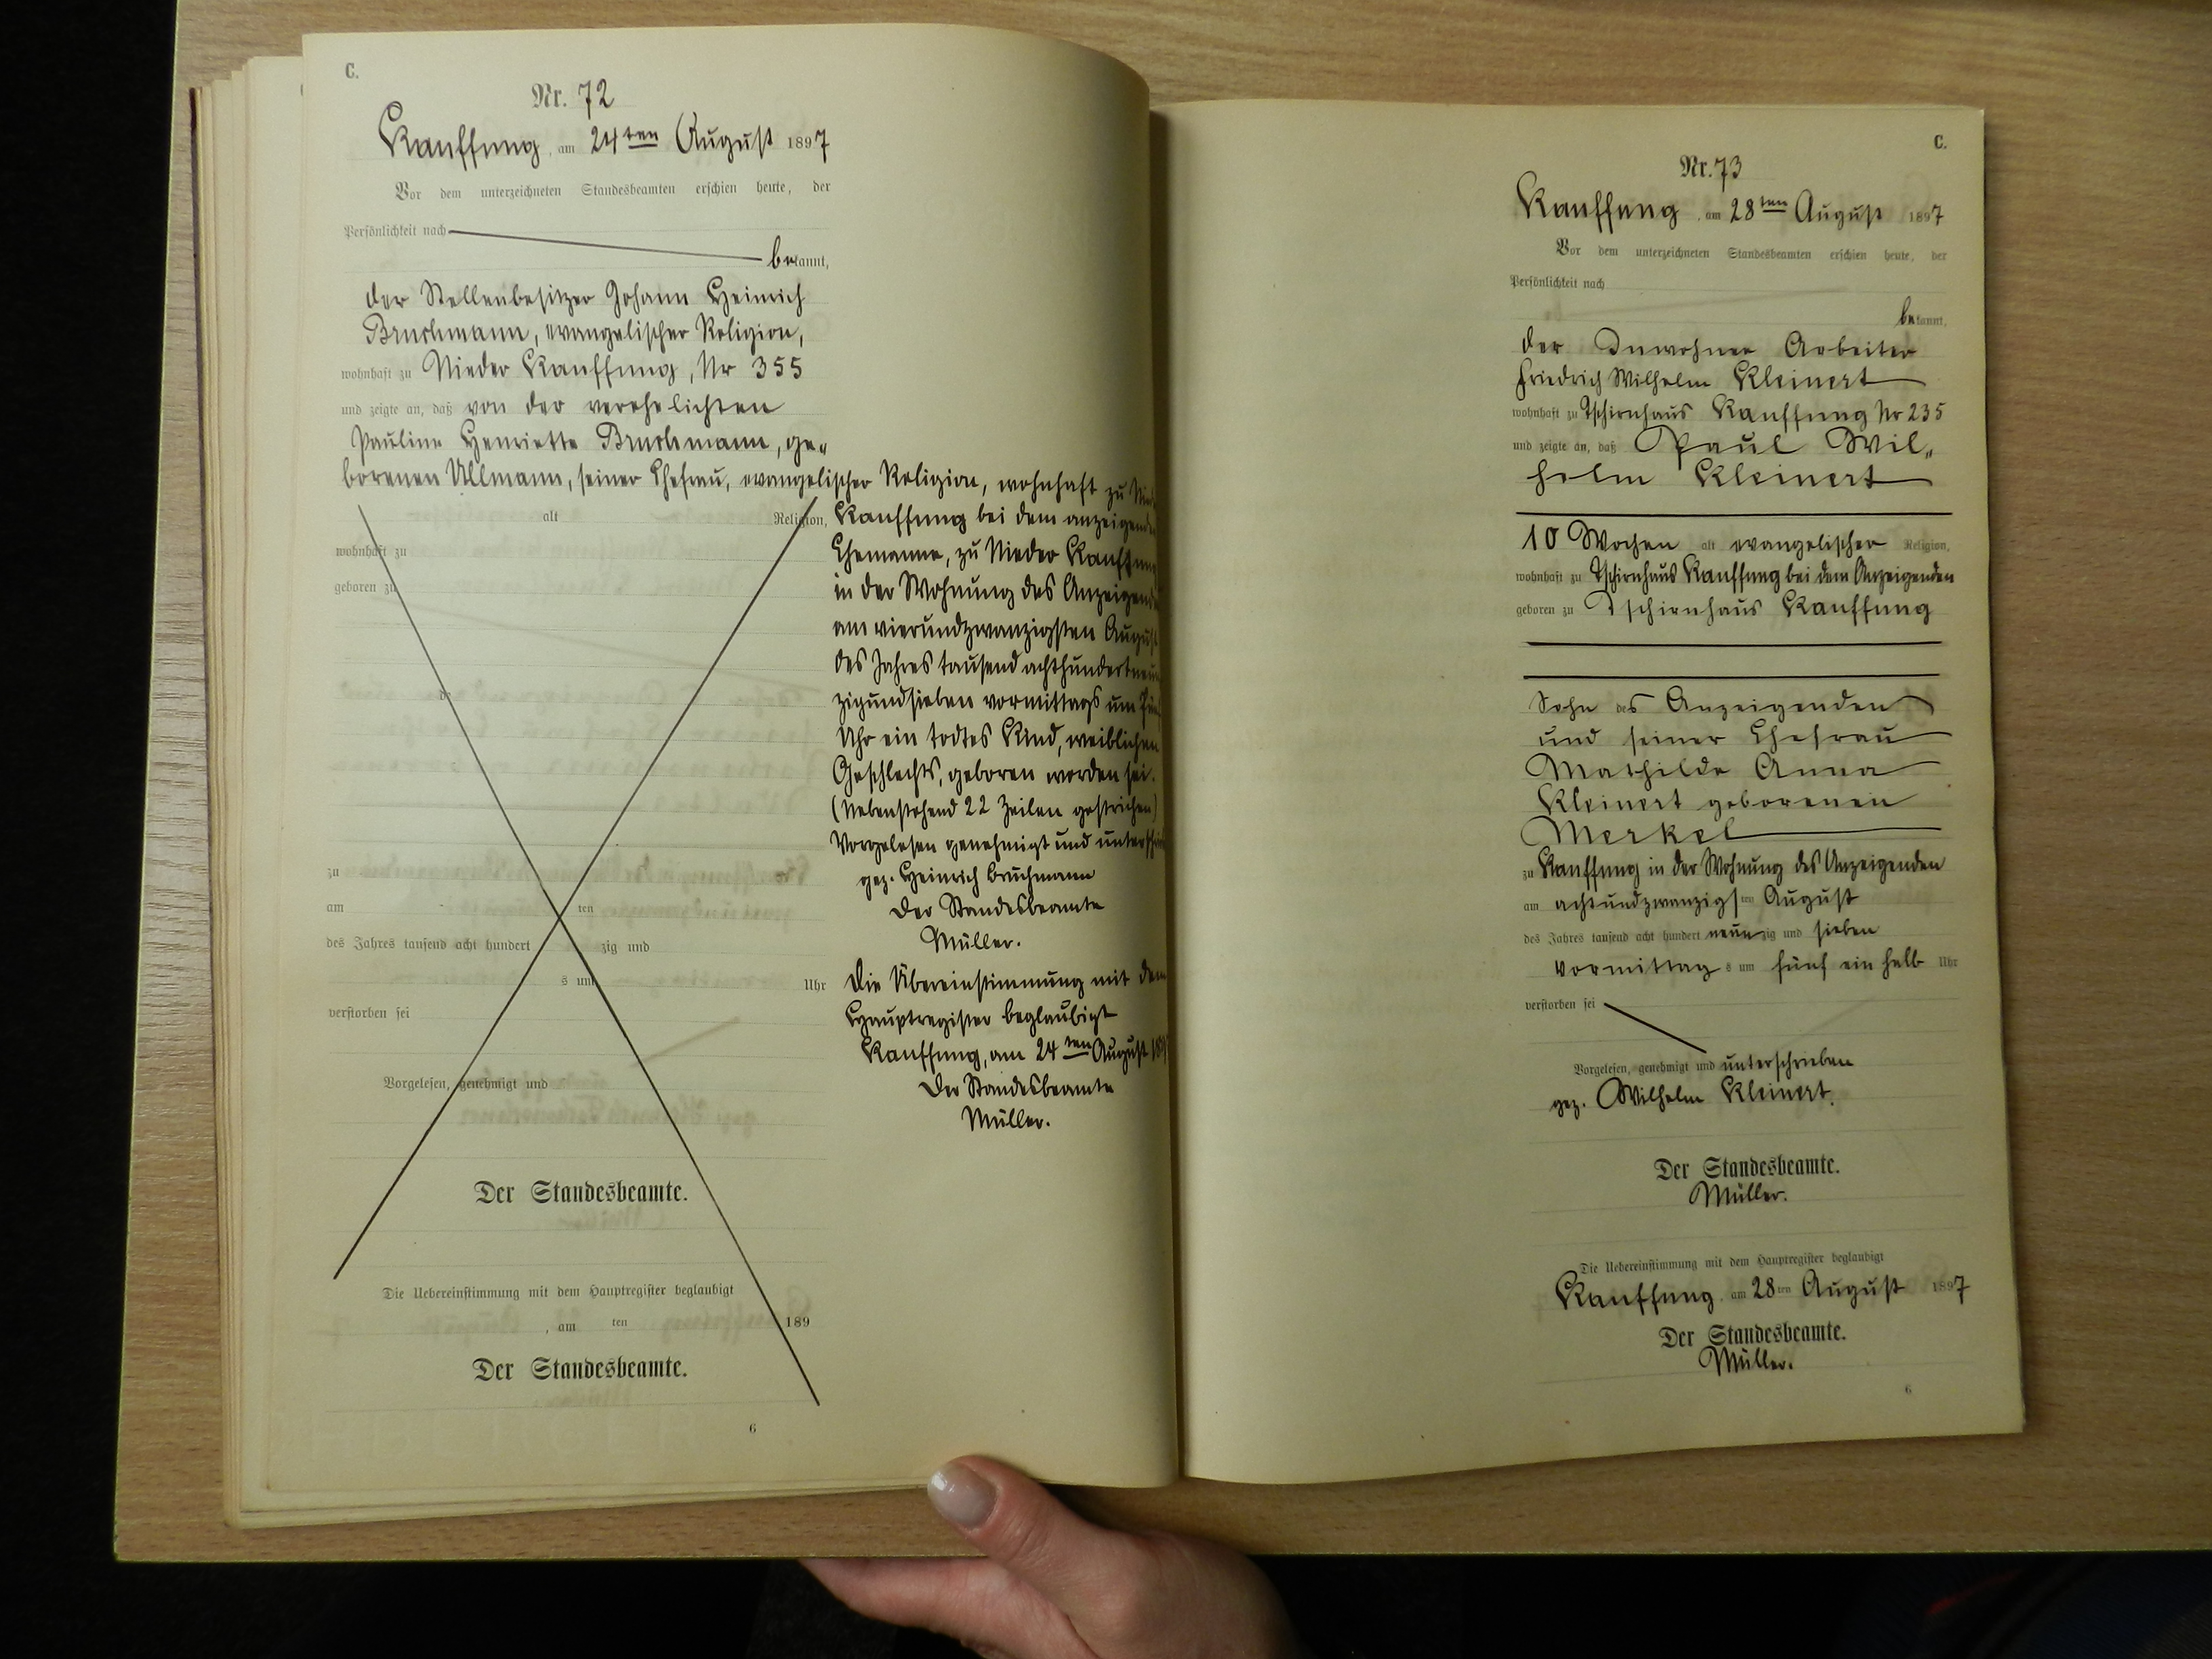 C.
Nr. 72
Kauffung, am 24ten August 1897
Vor dem unterzeichneten Standesbeamten erschien heute, der
Persönlichkeit nach
bekannt,
der Stellenbesitzer Johann Heinrich
Bruchmann, evangelischer Religion,
wohnhaft zu Nieder Kauffung, Nr 355
und zeigte an, daß von der verehelichten
Pauline Henriette Bruchmann, ge„
borenen Ullmann, seiner Ehefrau, evangelischer Religion, wohnhaft zu
alt Religion, Kauffung bei dem anzeigenden
wohnhaft zu Ehemanne, zu Nieder Kauffung
geboren zu in der Wohnung des Anzeigenden
am vierundzwanzigsten August
des Jahres tausend achthundertneun
de zigundsieben vormittags um
Uhr ein todtes Kind, weiblichen
Geschlechts, geboren worden sei.
(Nebenstehend 22 Zeilen gestrichen)
Vorgelesen genehmigt und
zu gez. Heinrich Bruchmann
am ten Der Standesbeamte
des Jahres tausend acht hundert zig und Müller.
s um Uhr Die Übereinstimmung mit dem
verstorben sei Hauptregister beglaubigt
Kauffung, am 24ten August
Vorgelesen, genehmigt und Der Standesbeamte
Müller.
Der Standesbeamte.
Die Uebereinstimmung mit dem Hauptregister beglaubigt
, am ten 189
Der Standesbeamte.
6
C.
Nr. 73
Kauffung, am 28ten August 1897
Vor dem unterzeichneten Standesbeamten erschien heute, der
Persönlichkeit nach
bekannt,
der Inwohner Arbeiter
Friedrich Wilhelm Kleinert
wohnhaft zu Tschirnhaus Kauffung Nr 235
und zeigte an, daß Paul Wil„
helm Kleinert
10 Wochen alt evangelischer Religion,
wohnhaft zu Tschirnhaus Kauffung bei dem Anzeigenden
geboren zu Tschirnhaus Kauffung
Sohn des Anzeigenden
und seiner Ehefrau
Mathilde Anna
Kleinert geborenen
Merkel
zu Kauffung in der Wohnung des Anzeigenden
am achtundzwanzigsten August
des Jahres tausend acht hundert neunzig und sieben
vormittags um fünf ein halb Uhr
verstorben sei
Vorgelesen, genehmigt und unterschrieben
gez. Wilhelm Kleinert.
Der Standesbeamte.
Müller.
Die Uebereinstimmung mit dem Hauptregister beglaubigt
Kauffung, am 28ten August 1897
Der Standesbeamte.
Müller.
6